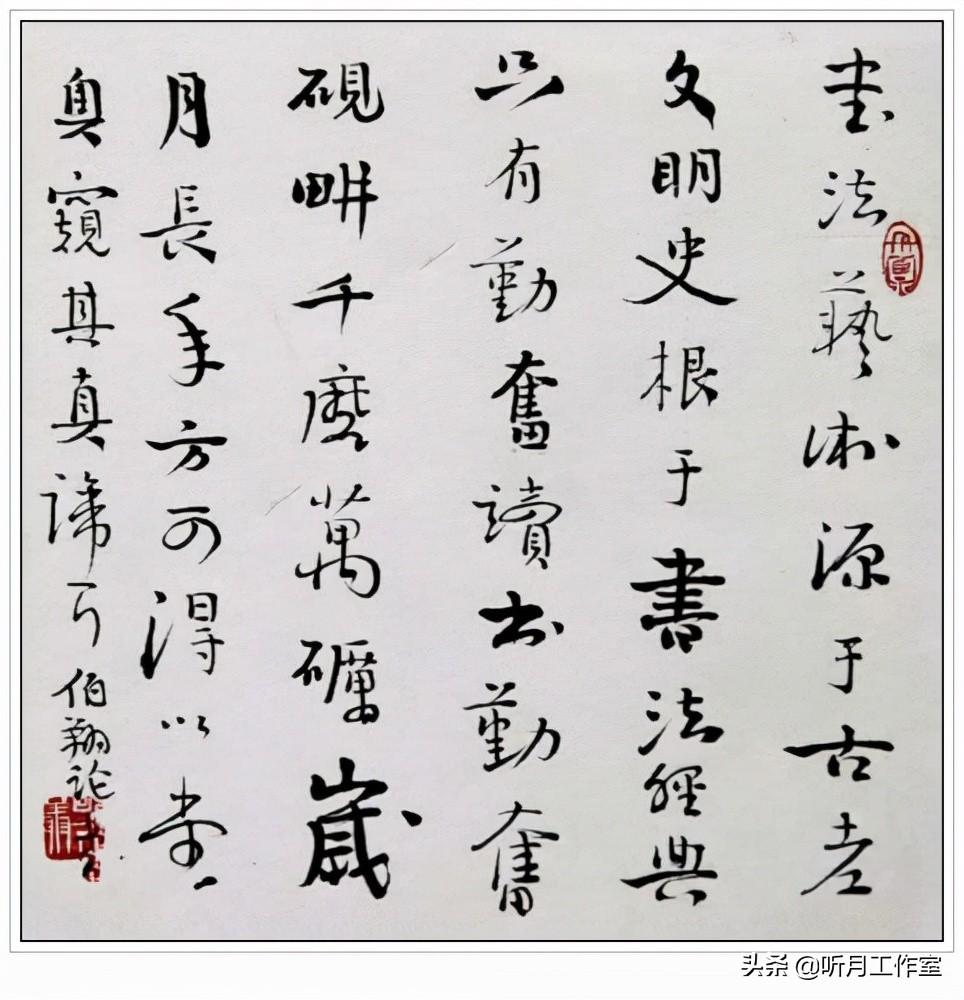 書法藝術源于古老
文明史根于書法經典
只有勤奮讀書勤奮
硯畊千磨萬礪歲
月長年方可得以堂
奥窺其真諦 伯翔论書
头条 @听月工作室